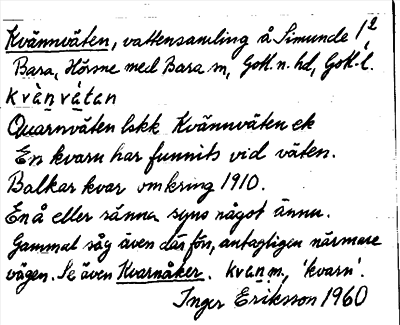 Kvännväten, vattensamling å Simunde 1²
Bara, Hörsne med Bara sn, Gotl. n. hd, Gotl. l.
kvànvätan
Quarnväten lskk Kvännväten ek
En kvarn har funnits vid väten.
Balkar kvar omkring 1910.
En å eller ränna syns något ännu.
Gammal såg även där förr, antagligen närmare
vägen. Se även Kvarnåker. kvan m, 'kvarn'.
Inger Eriksson 1960